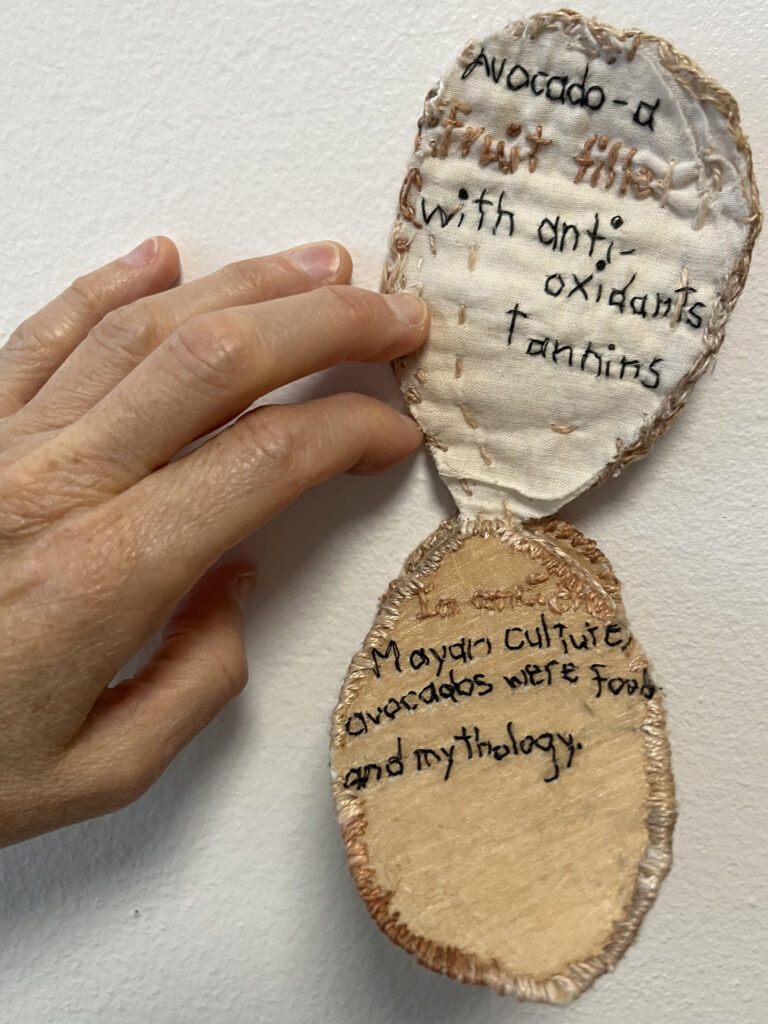 Avocado-a
fruit filled
with anti-
oxidants
Tannins
In ancient
Mayan culture,
avocados were food
and mythology.